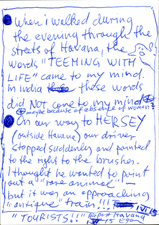 When i walked during
the evening through the
strats of Havana, the
words "TEEMING WITH
LIFE" came to my mind.
in India these words
did NOT come to my mind
maybe because of absence of women?
On our way to HERSEY
(outside Havana) our driver
stopped suddenly and pointed
to the right to the brushes.
i thought he wanted to point
out a "rare animal" –
but it was an approaching
"antique" train!!!
"TOURISTS!!"